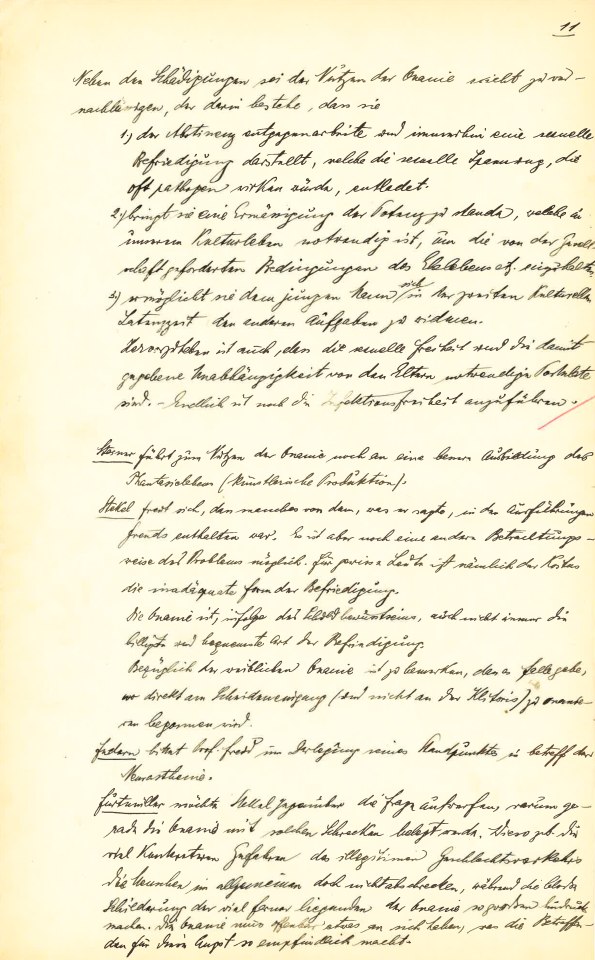 11
Neben den Schädigungen sei der Nutzen der Onanie nicht zu ver-
nachlässigen, der darin bestehe, dass sie
1.) der Abstinenz entgegenarbeite und immerhin eine sexuelle
Befriedigung darstellt, welche die sexuelle Spannung, die
oft pathogen wirken würde, entladet.
2.) bringt sie eine Ermässigung der Potenz zu stande, welche in
unserem Kulturleben notwendig ist, um die von der Gesell-
schaft geforderten Bedingungen des Ehelebens etz. einzuhalten
3.) ermöglicht sie dem jungen Mann sich in der zweiten kulturellen
Latenzzeit den anderen Aufgaben zu widmen.
Hervorzuheben ist auch, dass die sexuelle Freiheit und die damit
gegebene Unabhängigkeit von den Eltern notwendige Postulate
sind. – Endlich ist noch die Infektionsfreiheit anzuführen.
Sterner führt zum Nutzen der Onanie noch an eine bessere Ausbildung des
Phantasielebens (künstlerische Produktion).
Stekel freut sich, dass manches von dem, was er sagte, in den Ausführungen
Freuds enthalten war. Es ist aber noch eine andere Betrachtungs-
weise des Problems möglich. Für gewisse Leute ist nämlich der Koitus
die inadäquate Form der Befriedigung.
Die Onanie ist, infolge des Schuldbewusstseins, auch nicht immer die
billigste und bequemste Art der Befriedigung.
Bezüglich der weiblichen Onanie ist zu bemerken, dass es Fälle gebe,
wo direkt am Scheideneingang (und nicht an der Klitoris) zu onanie-
ren begonnen wird.
Federn bittet Prof. Freud um Darlegung seines Standpunktes in betreff der
Neurasthenie.
Furtmüller möchte Stekel gegenüber die Frage aufwerfen, warum ge-
rade die Onanie mit solchen Schrecken belegt werde. Wieso geb. die
viel konkreteren Gefahren des illegitimen Geschlechtsverkehrs
die Menschen im allgemeinen doch nicht abschrecken, während die blosse
Schilderung der viel ferner liegenden der Onanie so grossen Eindruck
machen. Die Onanie muss offenbar etwas an sich haben, was die Betreffen-
den für diese Angst so empfindlich macht.